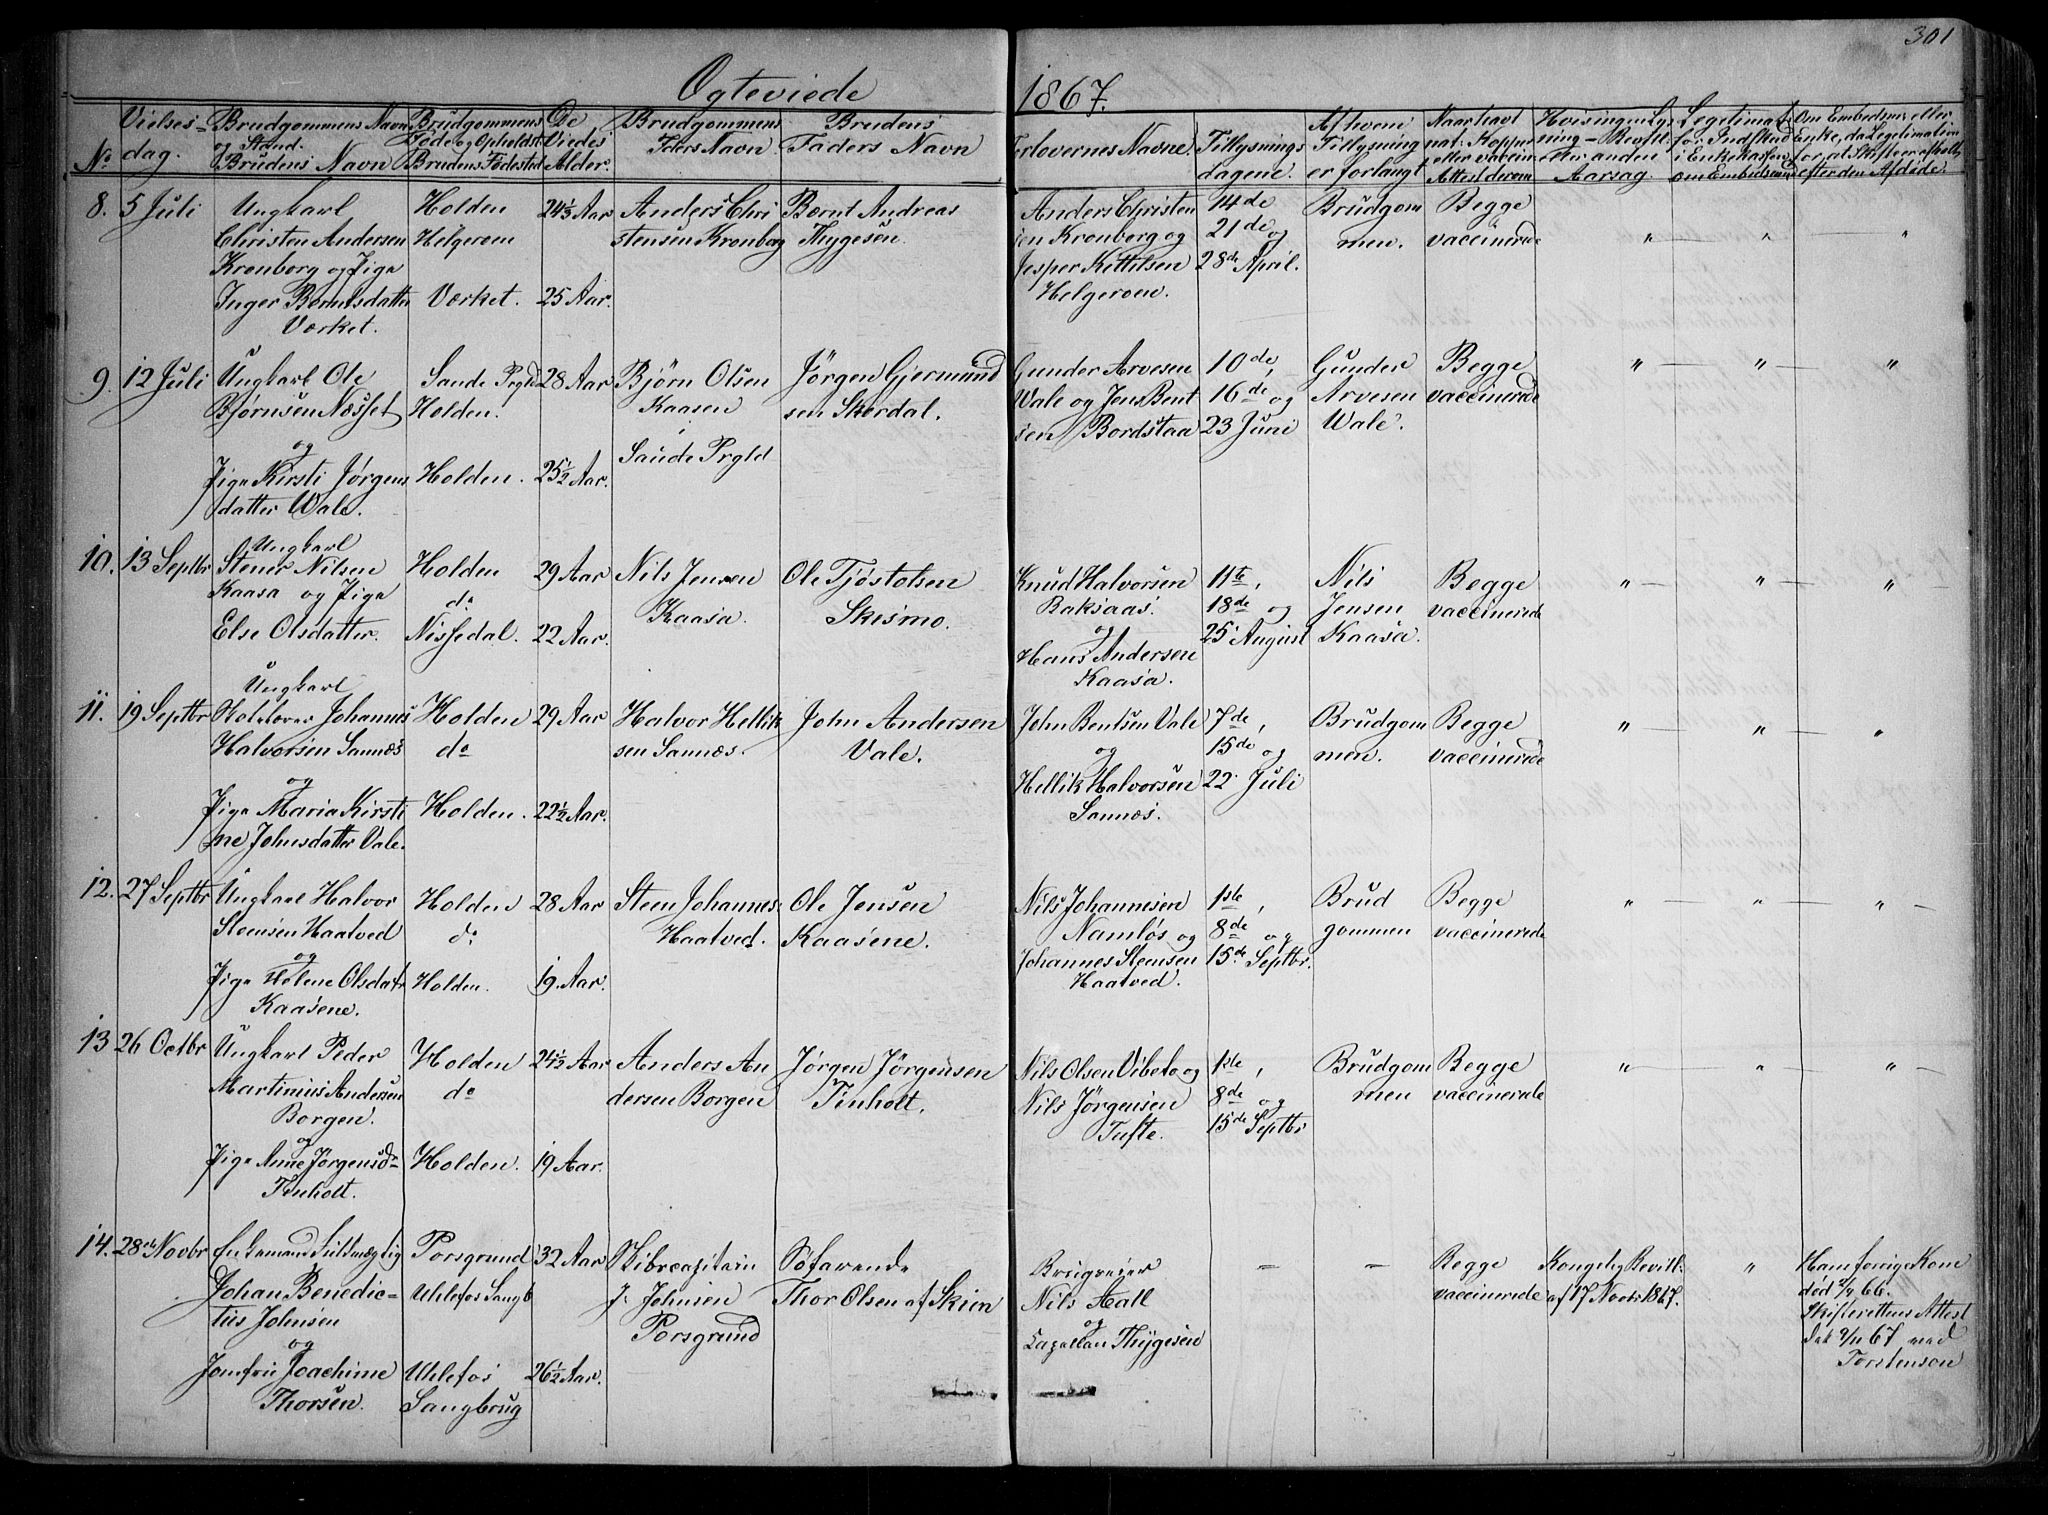 301
Ogteviede 1867.
No
Vielses-
dag.
Brudgommens Navn
og Stand.
Brudens Navn
Brudgommens
Føde og Opholdst
Brudens Fødested
De
Viedes
Alder.
Brudgommens
Faders Navn
Brudens
Faders Navn
Forlovernes Navne.
Tillysnings
dagene.
Af hvem
Tillysning
er forlangt
Naar havt
nat: Kopper
eller vaccin
Attest derom
Aarsag.
Legitimat
for Indskud
i Enkekassen
om Embedsmand
Om Enkemand eller
Enke, da Legitimation
for at Skifte er afholdt
efter den Afdøde.
8. 5 Juli
Ungkarl
Christen Andersen
Kronborg og Pige
Inger Berntsdatter
Værket.
Holden
Helgeroen
Værket.
24 1/3 Aar
25 Aar.
Anders Chri
stensen Kronborg
Bernt Andreas
Thygesen.
Anders Christen
sen Kronborg og
Jesper Kittilsen
Helgeroen.
14de
21de og
28de April.
Brudgom
men.
Begge
vaccinerede
" " "
9. 12 Juli
Ungkarl Ole
Bjørnsen Næsset
og
Pige Kirsti Jørgens
datter Wale.
Saude Prgld
Holden.
Holden.
28 Aar
25 1/2 Aar.
Bjørn Olsen
Kaasen
Saude Prgld
Jörgen Gjermund
sen Skerdal.
Gunder Arvesen
Wale og Jens Bent
sen Bordstaa
10de,
16de og
23 Juni
Gunder
Arvesen
Wale.
Begge
vaccinerede
" " "
10. 13 Septbr
Ungkarl
Stener Nilsen
Kaasa og Pige
Else Olsdatter.
Holden
do
Nissedal.
29 Aar
22 Aar.
Nils Jensen
Kaasa.
Ole Tjöstolsen
Skesmo.
Knud Halvorsen
Baksaas.
og
Hans Andersen
Kaasa.
11te,
18de og
25 August
Nils
Jensen
Kaasa.
Begge
vaccinerede
" " "
11. 19 Septbr
Ungkarl
Johannes
Halvorsen Sannæs
og
Pige Maria Kirsti
ne Johnsdatter Vale.
Holden
do
Holden.
29 Aar
22 1/2 Aar.
Halvor Hellik
sen Sannæs.
John Andersen
Vale.
John Bentsen Vale
og
Hellik Halvorsen
Sannæs.
7de,
15de og
22. Juli
Brudgom
men.
Begge
vaccinerede
" " "
12. 27 Septbr
Ungkarl Halvor
Steensen Haatved
og
Pige Helene Olsdatr
Kaasene.
Holden
do
Holden.
28 Aar
19. Aar.
Steen Johannes:
Haatved.
Ole Jensen
Kaasene.
Nils Johannesen
Namløs og
Johannes Steensen
Haatved.
1ste,
8de og
15de Septbr.
Brud
gommen
Begge
vaccinerede
" " "
13 26 Octbr
Ungkarl Peder
Martinius Andersen
Borgen.
og
Pige Anne Jørgensd.
Tinholt.
Holden
do
Holden.
24 1/2 Aar
19 Aar.
Anders An
dersen Borgen
Jørgen Jørgensen
Tinholt.
Nils Olsen Vibeto og
Nils Jørgensen
Tufte.
1ste,
8de og
15de Septbr
Brudgom
men
Begge
vaccinerede
" " "
14. 28de Novbr
Enkemand Fuldmægtig
Johan Benedic-
tus Johnsen
og
Jomfru Joachime
Thorsen.
Porsgrund
Uhlefos Saugb
Uhlefos
Saugbrug
32 Aar
26 1/2 Aar.
Skibscapitain
J. Johnsen
Porsgrund
Søfarende
Thor Olsen af Skien
Brugseier
Nils Aall
og
Capellan Thygesen
Begge
vaccinerede
Kongelig Bevill.
af 17 Novbr 1867.
"
Hans forrige Kone
død 2/4 66.
Skifterettens Attest
Torstensen